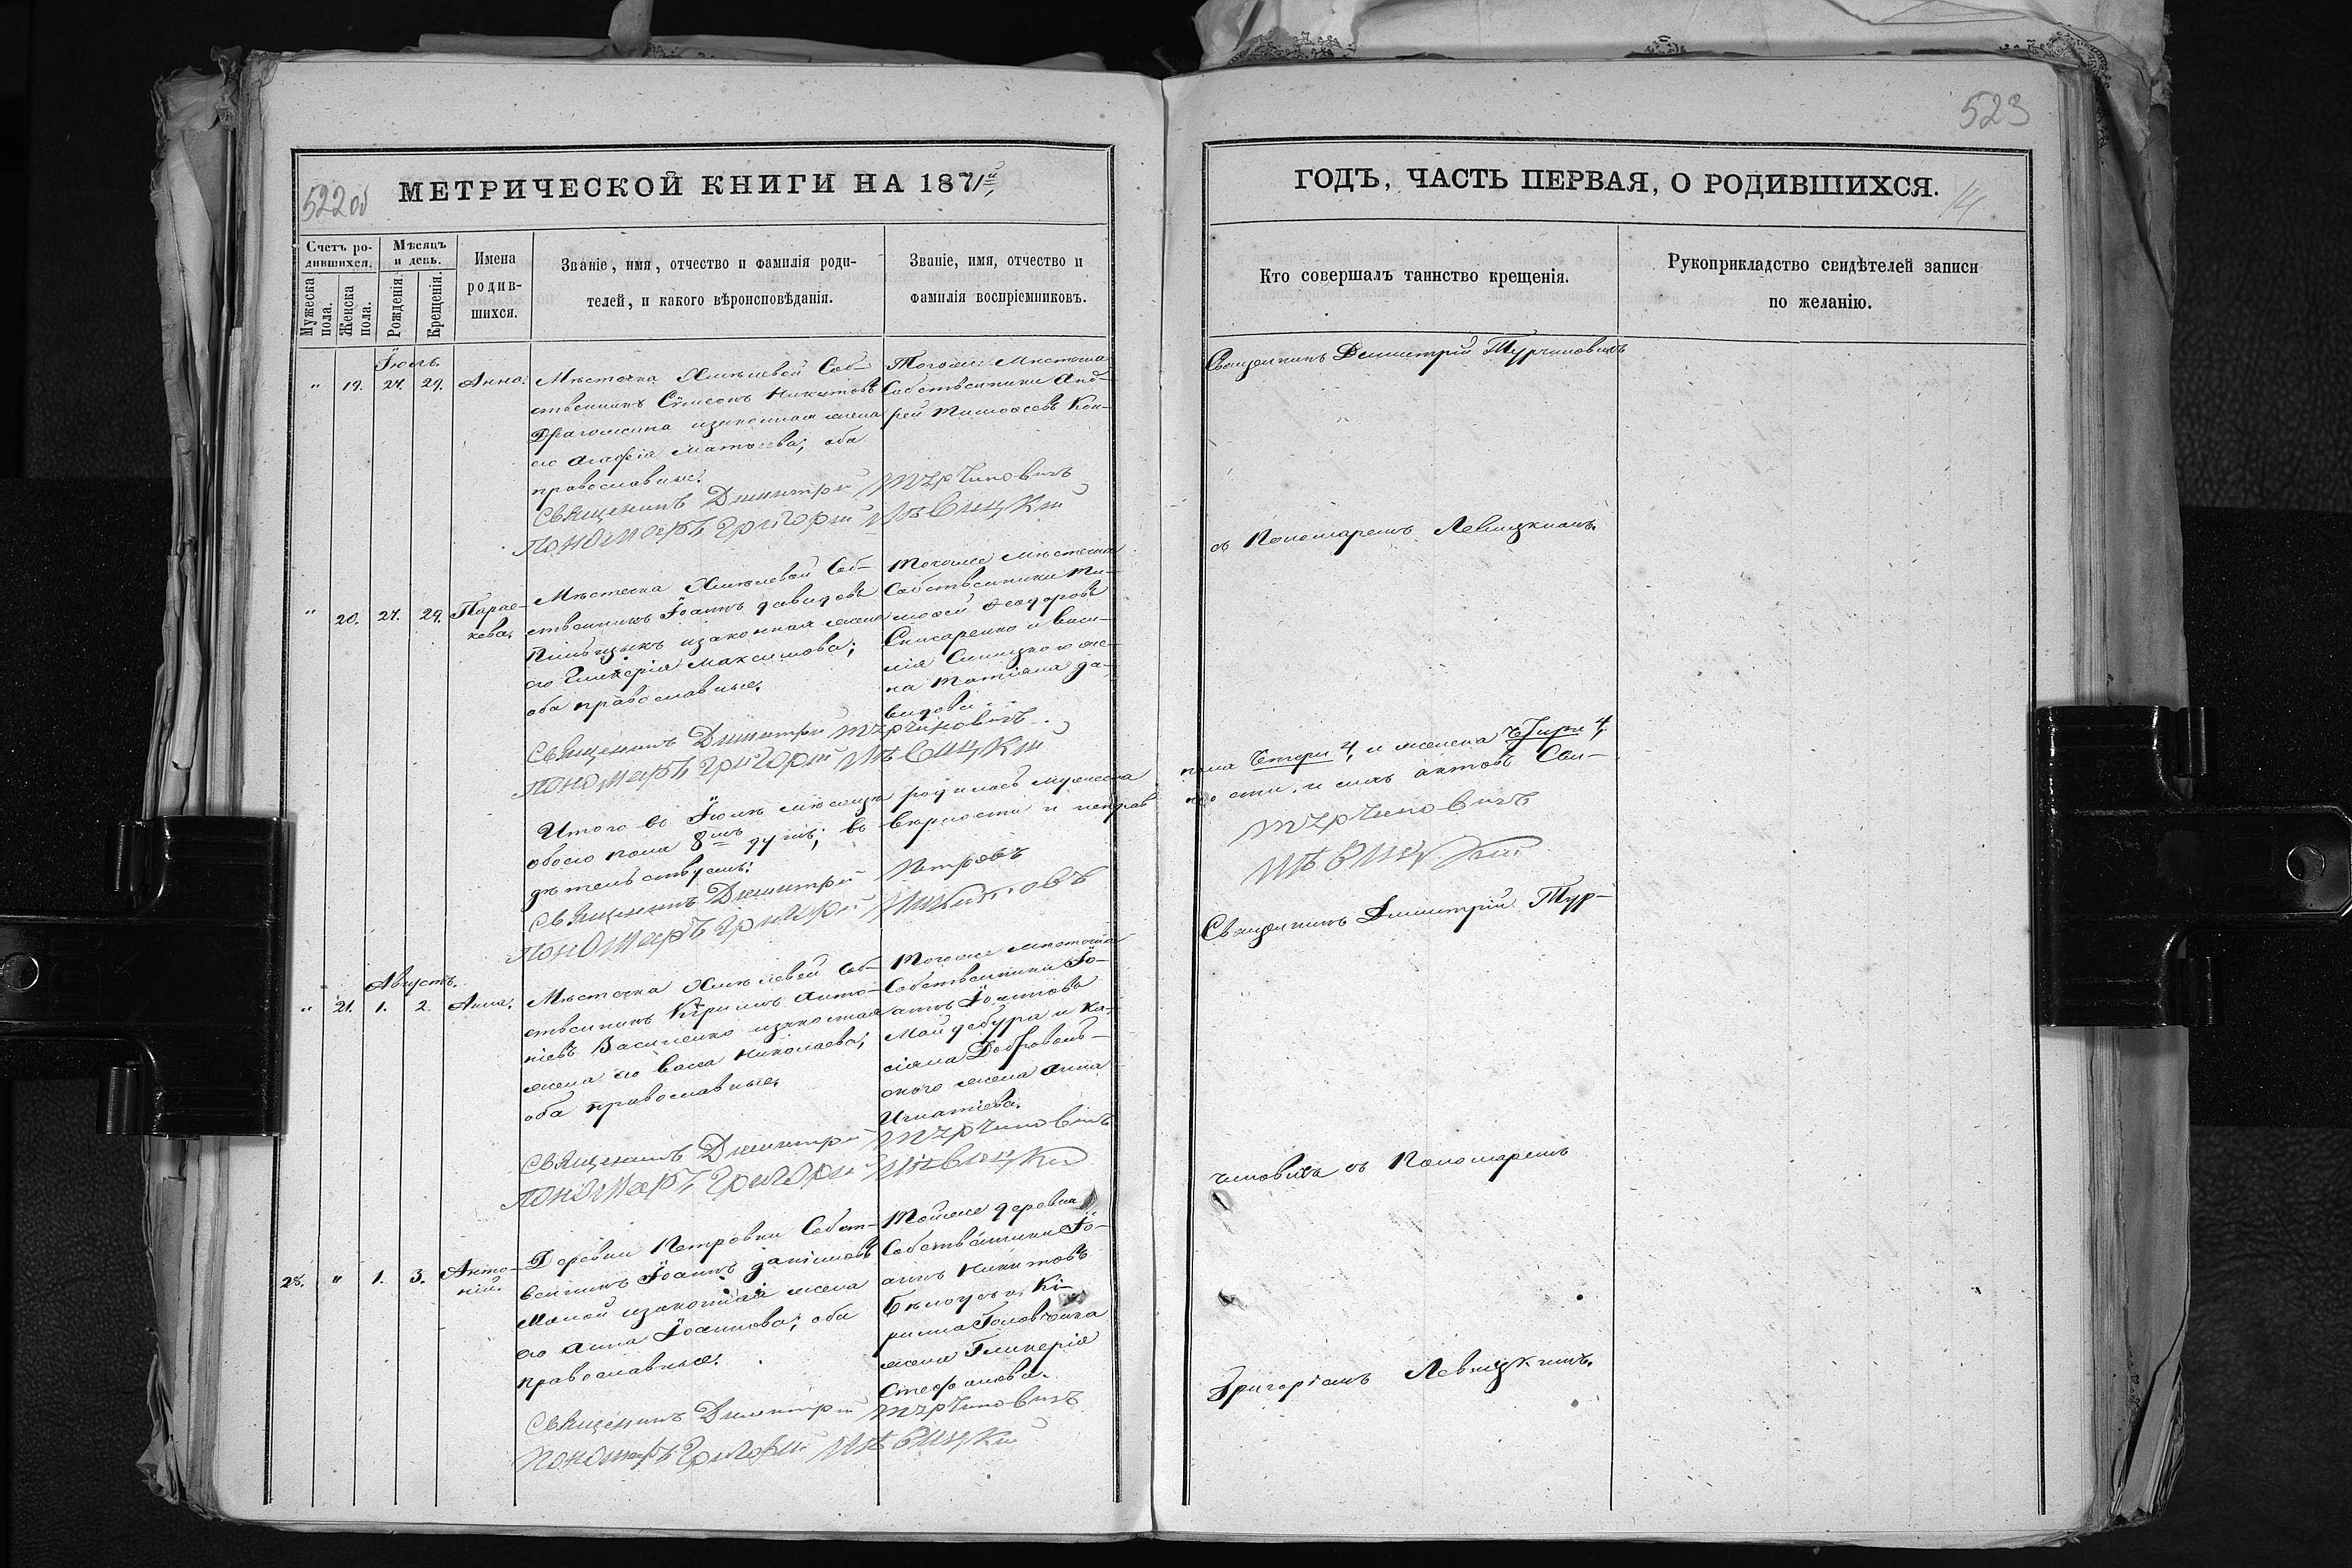 523
522об
МЕТРИЧЕСКОЙ КНИГИ НА 1871й
ГОДЪ, ЧАСТЬ ПЕРВАЯ, О РОДИВШИХСЯ.
14
Счетъ ро-
дившихся.
Мужеска
пола.
Женска
пола.
Мѣсяцъ
и день.
Рожденія.
Крещенія.
Имена
родив-
шихся.
Званіе, имя, отчество и фамилія роди-
телей, и какого вѣроисповѣданія.
Званіе, имя, отчество и
фамилія воспріемниковъ.
Кто совершалъ таинство крещенія.
Рукоприкладство свидѣтелей записи
по желанію.
Іюль
" 19. 27. 29. Анна.
Мѣстечка Хмѣлевой Соб-
ственникъ Сѵмеонъ Никитовъ
изаконная жена
его Агафія Матѳеева; оба
православные.
Тогоже Мѣстечка
Собственники Анд-
рей Тимофеевъ Кон-
Священникъ Димитрій Турчиновичъ
Пономарь Григорій Левицкій
Священникъ Димитрій Турчиновичъ
съ Пономаремъ Левицкимъ.
" 20. 27. 29. Парас-
кева.
Мѣстечка Хмѣлевой Соб-
ственникъ Іоаннъ Давидовъ
изаконная жена
его Гликерія Максимова;
оба православные.
Тогоже Мѣстечка
Собственники Ти-
мофей Ѳеодоровъ
Слисаренко и Васи-
лія Синицкого же-
на Татіана Да-
видова.
Священникъ Димитрій Турчиновичъ
Пономарь Григорій Левицкій
Итого въ Іюлѣ мѣсяцѣ родилось мужеска
пола Четыри 4, и женска Четыри 4,
обоего пола 8мь душъ; въ вѣрности и исправ
ности сихъ актовъ Сви-
дѣтельствуемъ:
Священникъ Димитрій
Турчиновичъ
Пономарь Григорій
Левицкій
Августъ.
" 21. 1. 2. Анна.
Мѣстечка Хмѣлевой Соб-
ственникъ Кѵриллъ Анто-
ніевъ Василенко изаконная
жена его Васса Николаева;
оба православные.
Тогоже Мѣстечка
Собственники Іо-
аннъ Іоанновъ
Майдебура и Ка-
сіяна Доброволь-
ского жена Анна
Игнатіева.
Священникъ Димитрій Турчиновичъ
Пономарь Григорій Левицкій
Священникъ Димитрій Тур-
чиновичъ съ Пономаремъ
Григоріемъ Левицкимъ.
28. " 1. 3. Анто-
ній.
Деревни Петровки Собст-
венникъ Іоаннъ
изаконная жена
его Анна Іоаннова; оба
православные.
Тойже деревни
Собственники Іо-
аннъ Никитовъ
Бѣлоусъ и Кі-
рилла Головченка
жена Гликерія
Стефанова.
Священникъ Димитрій Турчиновичъ
Пономарь Григорій Левицкій